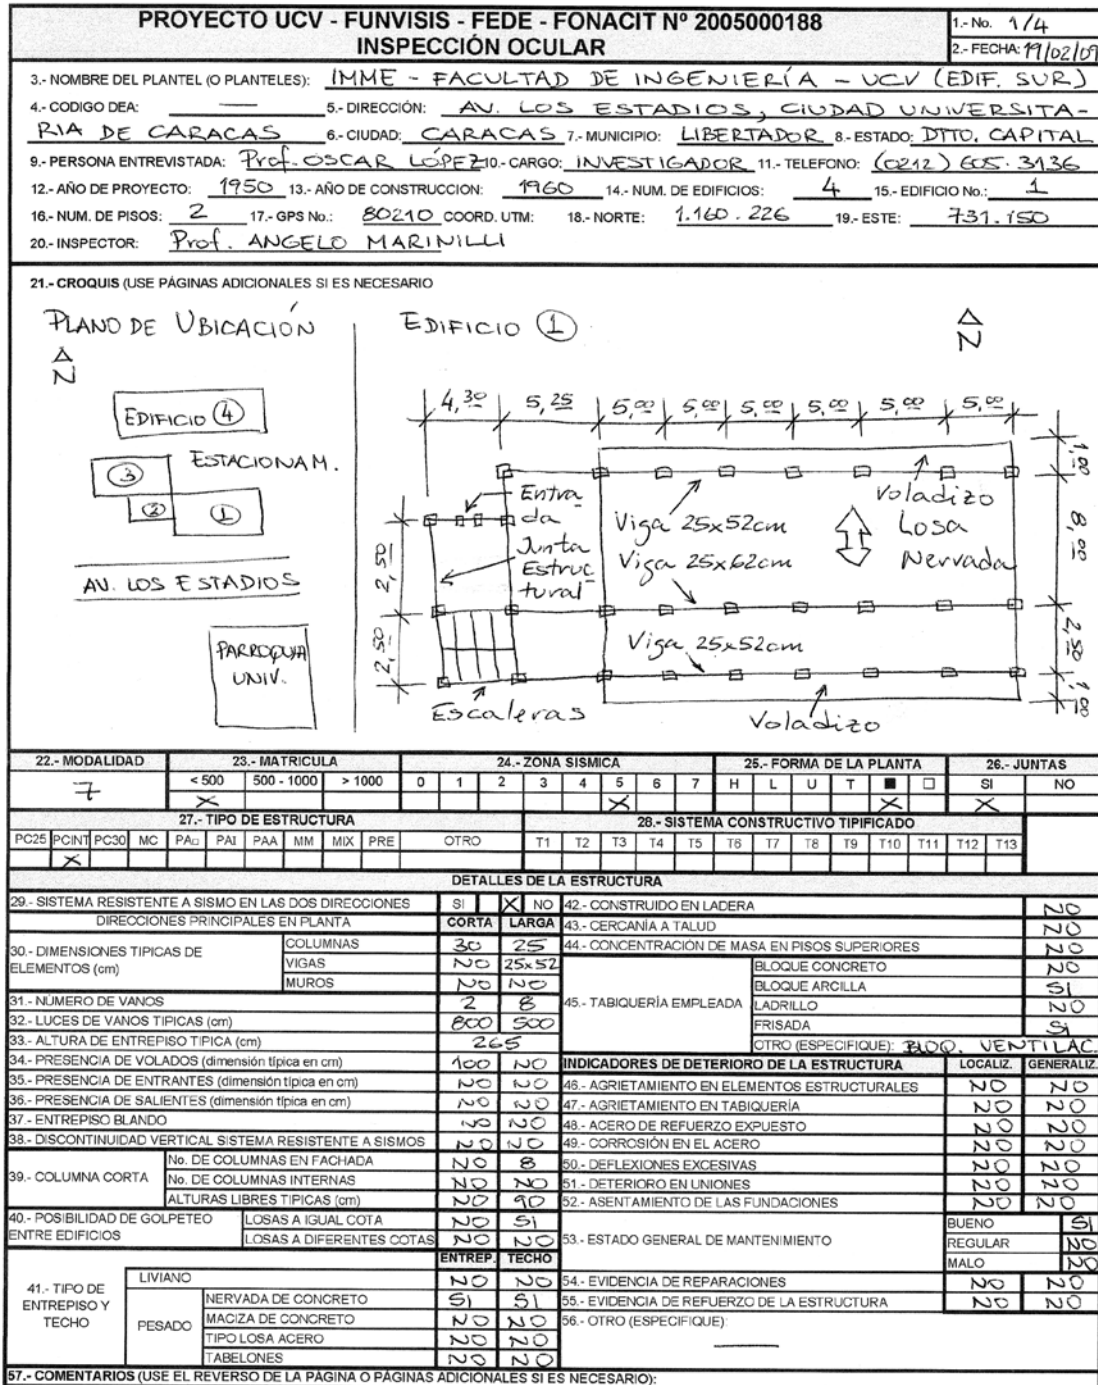 PROYECTO UCV - FUNVISIS - FEDE - FONACIT Nº 2005000188
INSPECCIÓN OCULAR
1.- No. 1/4
2.- FECHA: 19/02/07
3.- NOMBRE DEL PLANTEL (O PLANTELES): IMME - FACULTAD DE INGENIERÍA - UCV (EDIF. SUR)
4.- CODIGO DEA: — 5.- DIRECCIÓN: AV. LOS ESTADIOS, CIUDAD UNIVERSITA-
RIA DE CARACAS 6.- CIUDAD: CARACAS 7.- MUNICIPIO: LIBERTADOR 8.- ESTADO: DTTO. CAPITAL
9.- PERSONA ENTREVISTADA: Prof. OSCAR LÓPEZ 10.- CARGO: INVESTIGADOR 11.- TELEFONO: (0212) 605.3136
12.- AÑO DE PROYECTO: 1950 13.- AÑO DE CONSTRUCCION: 1960 14.- NUM. DE EDIFICIOS: 4 15.- EDIFICIO No.: 1
16.- NUM. DE PISOS: 2 17.- GPS No.: 80210 COORD. UTM: 18.- NORTE: 1.160.226 19.- ESTE: 731.150
20.- INSPECTOR: Prof. ANGELO MARINILLI
21.- CROQUIS (USE PÁGINAS ADICIONALES SI ES NECESARIO
PLANO DE UBICACIÓN
N
EDIFICIO 4
3
ESTACIONAM.
2
1
AV. LOS ESTADIOS
PARROQUIA
UNIV.
EDIFICIO 1
N
4,30 5,25 5,00 5,00 5,00 5,00 5,00 5,00
1,00
8,00
2,50
1,00
2,50
2,50
Entra-
da
Junta
Estruc-
tural
Viga 25x52cm
Viga 25x62cm
Voladizo
Losa
Nervada
Viga 25x52cm
Escaleras
Voladizo
22.- MODALIDAD 23.- MATRICULA 24.- ZONA SISMICA 25.- FORMA DE LA PLANTA 26.- JUNTAS
7 < 500 500 - 1000 > 1000 0 1 2 3 4 5 6 7 H L U T ■ □ SI NO
X X X X
27.- TIPO DE ESTRUCTURA 28.- SISTEMA CONSTRUCTIVO TIPIFICADO
PC25 PCINT PC30 MC PA□ PAI PAA MM MIX PRE OTRO T1 T2 T3 T4 T5 T6 T7 T8 T9 T10 T11 T12 T13
X
DETALLES DE LA ESTRUCTURA
29.- SISTEMA RESISTENTE A SISMO EN LAS DOS DIRECCIONES SI X NO
DIRECCIONES PRINCIPALES EN PLANTA CORTA LARGA
30.- DIMENSIONES TIPICAS DE ELEMENTOS (cm)
COLUMNAS 30 25
VIGAS NO 25x52
MUROS NO NO
31.- NÚMERO DE VANOS 2 8
32.- LUCES DE VANOS TIPICAS (cm) 800 500
33.- ALTURA DE ENTREPISO TIPICA (cm) 265
34.- PRESENCIA DE VOLADOS (dimensión típica en cm) 100 NO
35.- PRESENCIA DE ENTRANTES (dimensión típica en cm) NO NO
36.- PRESENCIA DE SALIENTES (dimensión típica en cm) NO NO
37.- ENTREPISO BLANDO NO NO
38.- DISCONTINUIDAD VERTICAL SISTEMA RESISTENTE A SISMOS NO NO
39.- COLUMNA CORTA
No. DE COLUMNAS EN FACHADA NO 8
No. DE COLUMNAS INTERNAS NO NO
ALTURAS LIBRES TIPICAS (cm) NO 90
40.- POSIBILIDAD DE GOLPETEO ENTRE EDIFICIOS
LOSAS A IGUAL COTA NO SI
LOSAS A DIFERENTES COTAS NO NO
ENTREP. TECHO
41.- TIPO DE ENTREPISO Y TECHO
LIVIANO NO NO
PESADO
NERVADA DE CONCRETO SI SI
MACIZA DE CONCRETO NO NO
TIPO LOSA ACERO NO NO
TABELONES NO NO
42.- CONSTRUIDO EN LADERA NO
43.- CERCANÍA A TALUD NO
44.- CONCENTRACIÓN DE MASA EN PISOS SUPERIORES NO
45.- TABIQUERÍA EMPLEADA
BLOQUE CONCRETO NO
BLOQUE ARCILLA SI
LADRILLO NO
FRISADA SI
OTRO (ESPECIFIQUE): BLOQ. VENTILAC.
INDICADORES DE DETERIORO DE LA ESTRUCTURA LOCALIZ. GENERALIZ.
46.- AGRIETAMIENTO EN ELEMENTOS ESTRUCTURALES NO NO
47.- AGRIETAMIENTO EN TABIQUERÍA NO NO
48.- ACERO DE REFUERZO EXPUESTO NO NO
49.- CORROSIÓN EN EL ACERO NO NO
50.- DEFLEXIONES EXCESIVAS NO NO
51.- DETERIORO EN UNIONES NO NO
52.- ASENTAMIENTO DE LAS FUNDACIONES NO NO
53.- ESTADO GENERAL DE MANTENIMIENTO
BUENO SI
REGULAR NO
MALO NO
54.- EVIDENCIA DE REPARACIONES NO NO
55.- EVIDENCIA DE REFUERZO DE LA ESTRUCTURA NO NO
56.- OTRO (ESPECIFIQUE): —
57.- COMENTARIOS (USE EL REVERSO DE LA PÁGINA O PÁGINAS ADICIONALES SI ES NECESARIO):